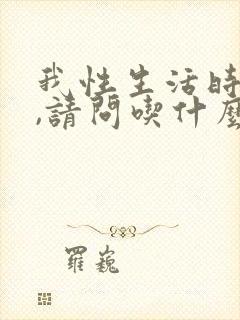 我性生活時
,請問喫什麼
羅巍